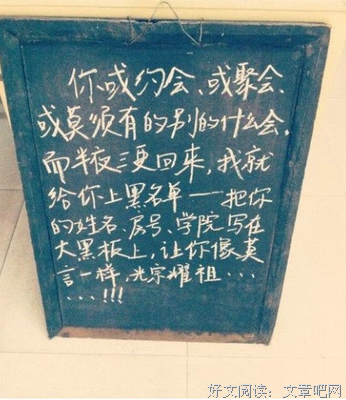 你或约会、或聚会、
或莫须有的别的什么会，
而半夜三更回来，我就
给你上黑名单——把你
的姓名、房号、学院写在
大黑板上，让你像莫
言一样，光宗耀祖...
...!!!
好文阅读：文章吧网